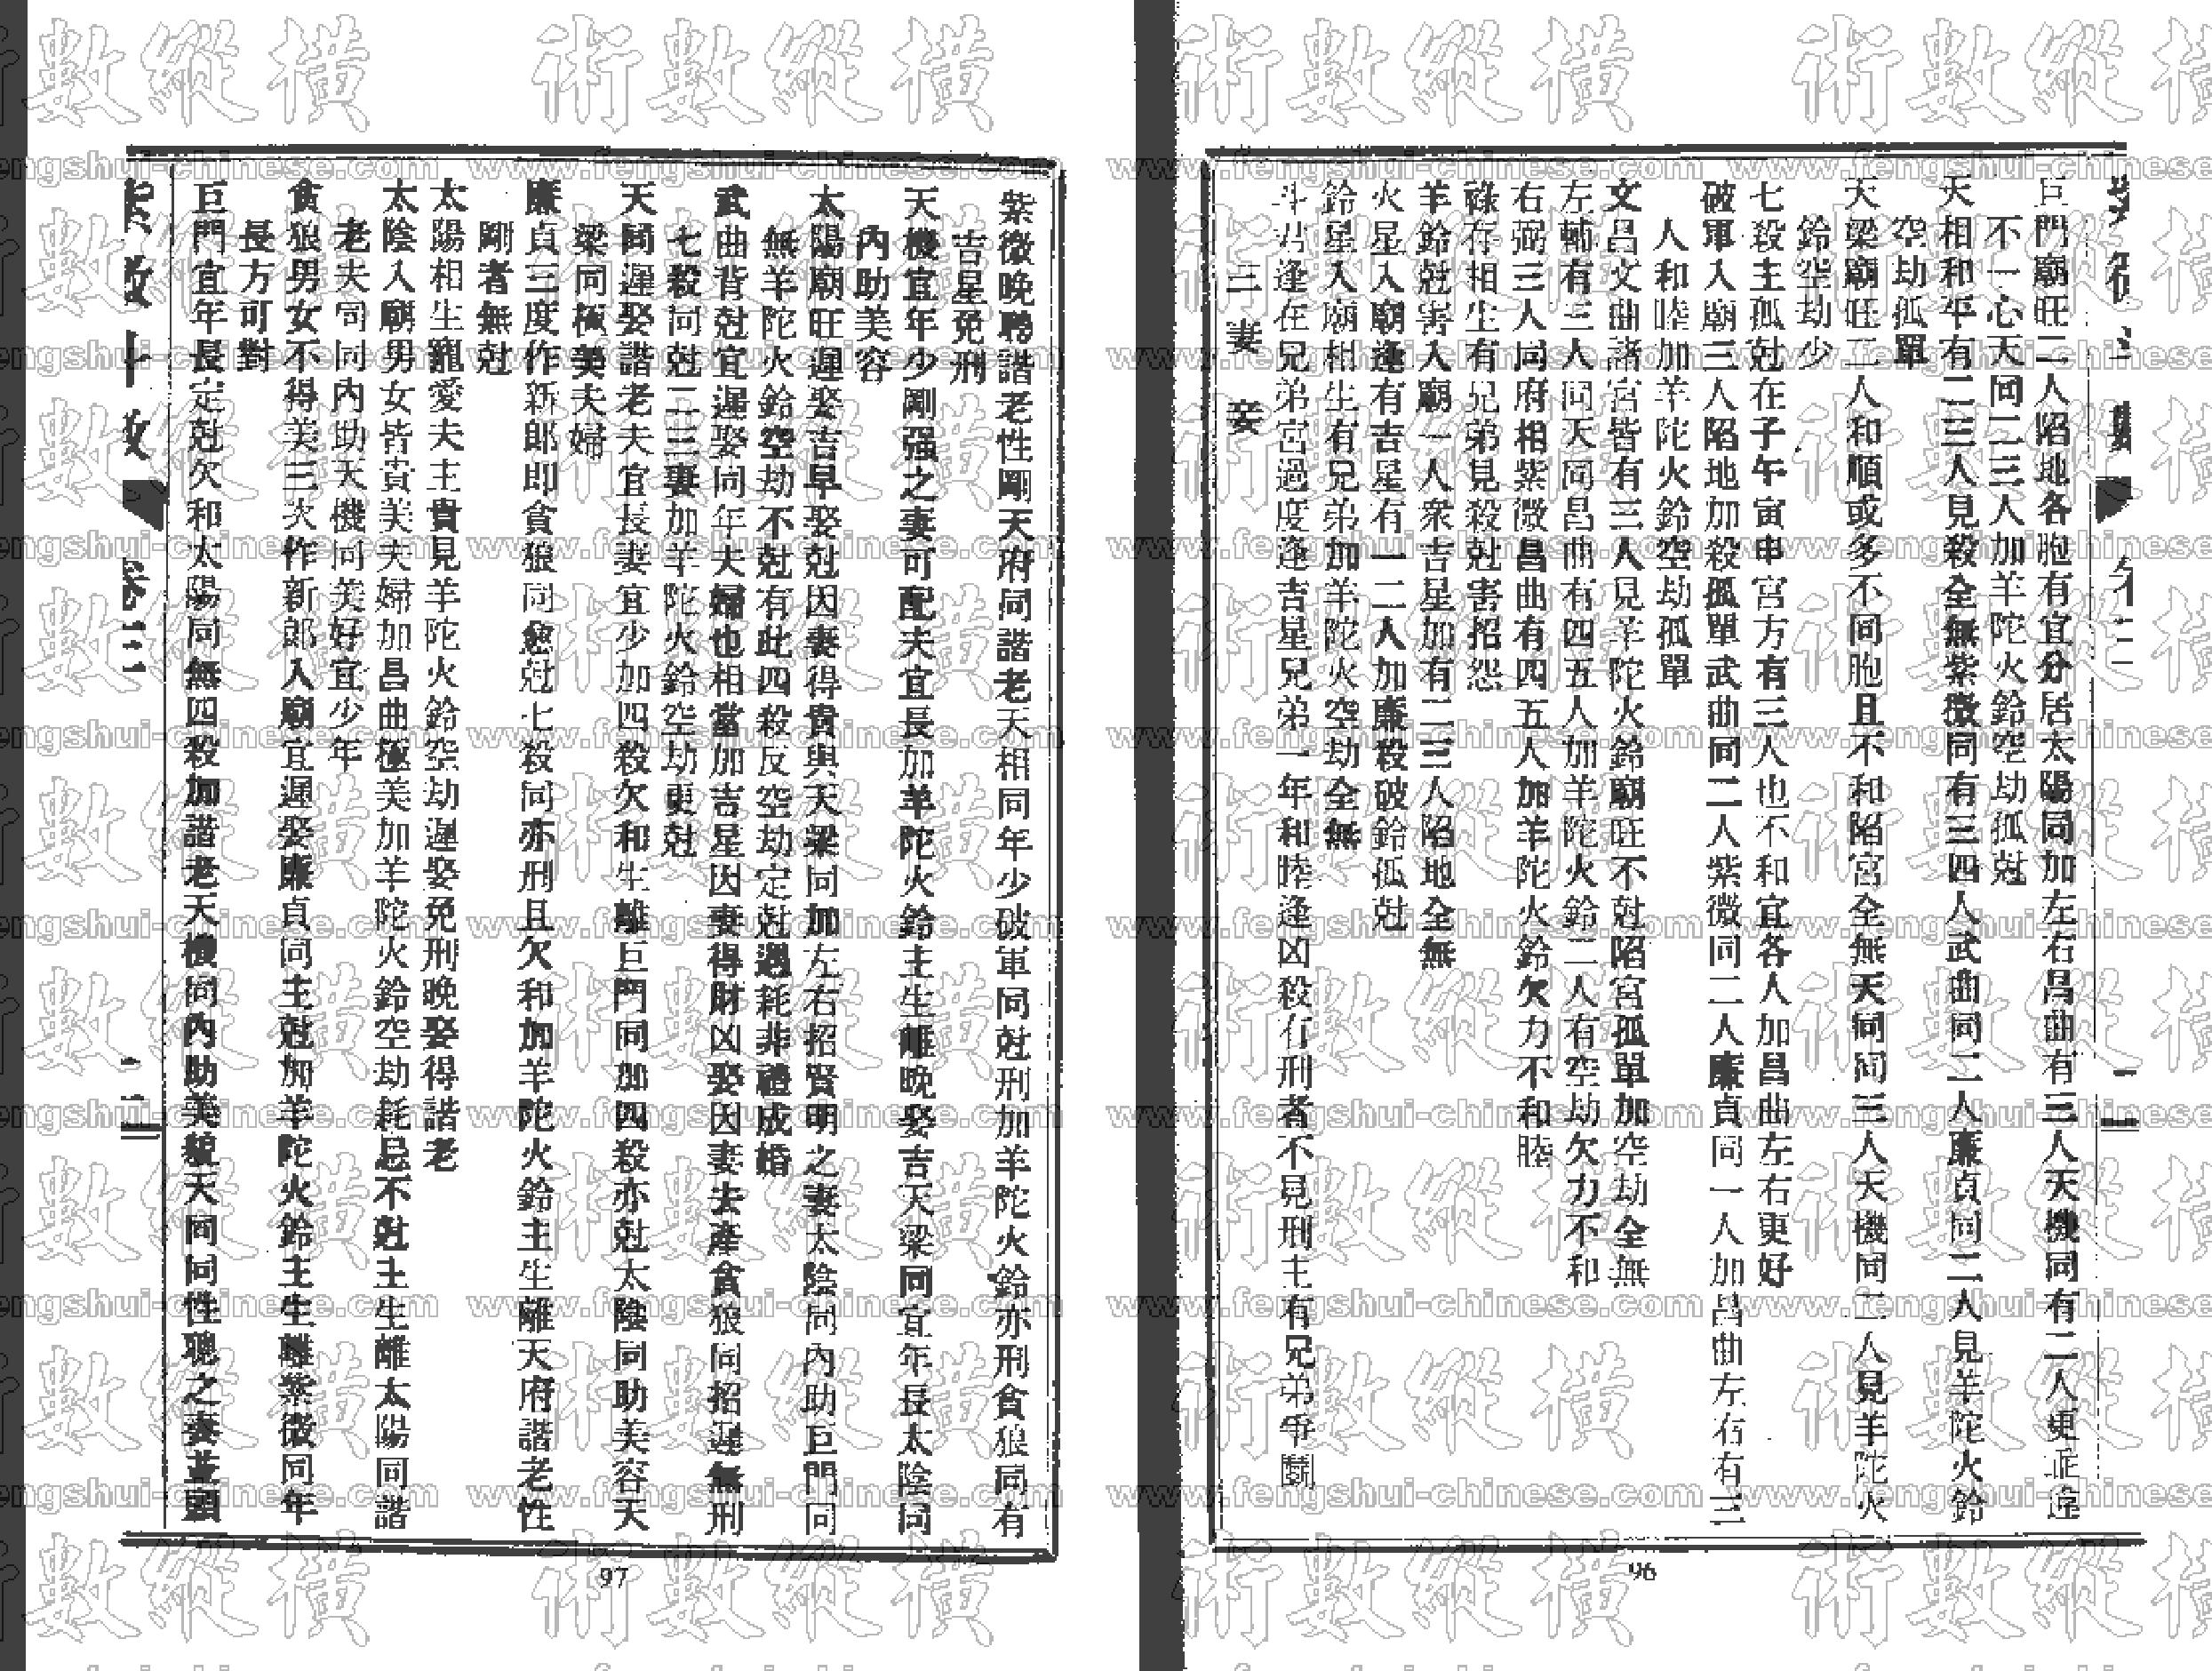 巨門廟旺二人陷地各胞有宜分居太陽同加左右昌曲有三人天機同有二人更乖違
不一心天同二三人加羊陀火鈴空劫孤尅
天相和平有二三人見殺全無紫微同有三四人武曲同二人廉貞同二人見羊陀火鈴
空劫孤單
天梁廟旺二人和順或多不同胞且不和陷宮全無天同同三人天機同二人見羊陀火
鈴空劫少
七殺主孤尅在子午寅申宮方有三人也不和宜各人加昌曲左右更好
破軍入廟三人陷地加殺孤單武曲同二人紫微同二人廉貞同一人加昌曲左右有三
人和睦加羊陀火鈴空劫孤單
文昌文曲諸宮皆有三人見羊陀火鈴廟旺不尅陷宮孤單加空劫全無
左輔有三人同天同昌曲有四五人加羊陀火鈴二人有空劫欠力不和
右弼三人同府相紫微昌曲有四五人加羊陀火鈴欠力不和睦
祿存相生有兄弟見殺尅害招怨
羊鈴尅害入廟一人衆吉星加有二三人陷地全無
火星入廟逢有吉星有一二人加廉殺破鈴孤尅
鈴星入廟相生有兄弟加羊陀火空劫全無
斗君逢在兄弟宮過度逢吉星兄弟一年和睦逢凶殺有刑者不見刑主有兄弟爭鬭
三 妻 妾
96
紫微晚聘諧老性剛天府同諧老天相同年少破軍同尅刑加羊陀火鈴亦刑貪狼同有
吉星免刑
天機宜年少剛强之妻可配夫宜長加羊陀火鈴主生離晚娶吉天梁同宜年長太陰同
內助美容
太陽廟旺遲娶吉早娶尅因妻得貴與天梁同加左右招賢明之妻太陰同內助巨門同
無羊陀火鈴空劫不尅有此四殺反空劫定尅遇耗非禮成婚
武曲背尅宜遲娶同年夫婦也相當加吉星因妻得財凶娶因妻去產貪狼同招遲無刑
七殺同尅二三妻加羊陀火鈴空劫更尅
天同遲娶諧老夫宜長妻宜少加四殺欠和生離巨門同加四殺亦尅太陰同助美容天
梁同極美夫婦
廉貞三度作新郎即貪狼同愈尅七殺同亦刑且欠和加羊陀火鈴主生離天府諧老性
剛者無尅
太陽相生寵愛夫主貴見羊陀火鈴空劫遲娶免刑晚娶得諧老
太陰入廟男女皆貴美夫婦加昌曲極美加羊陀火鈴空劫耗忌不尅主生離太陽同諧
老夫同同內助天機同美好宜少年
貪狼男女不得美三次作新郎入廟宜遲娶廉貞同主尅加羊陀火鈴主生離紫微同年
長方可對
巨門宜年長定尅欠和太陽同無四殺加諧老天機同內助美貌天同同性聰之妻並頭
97